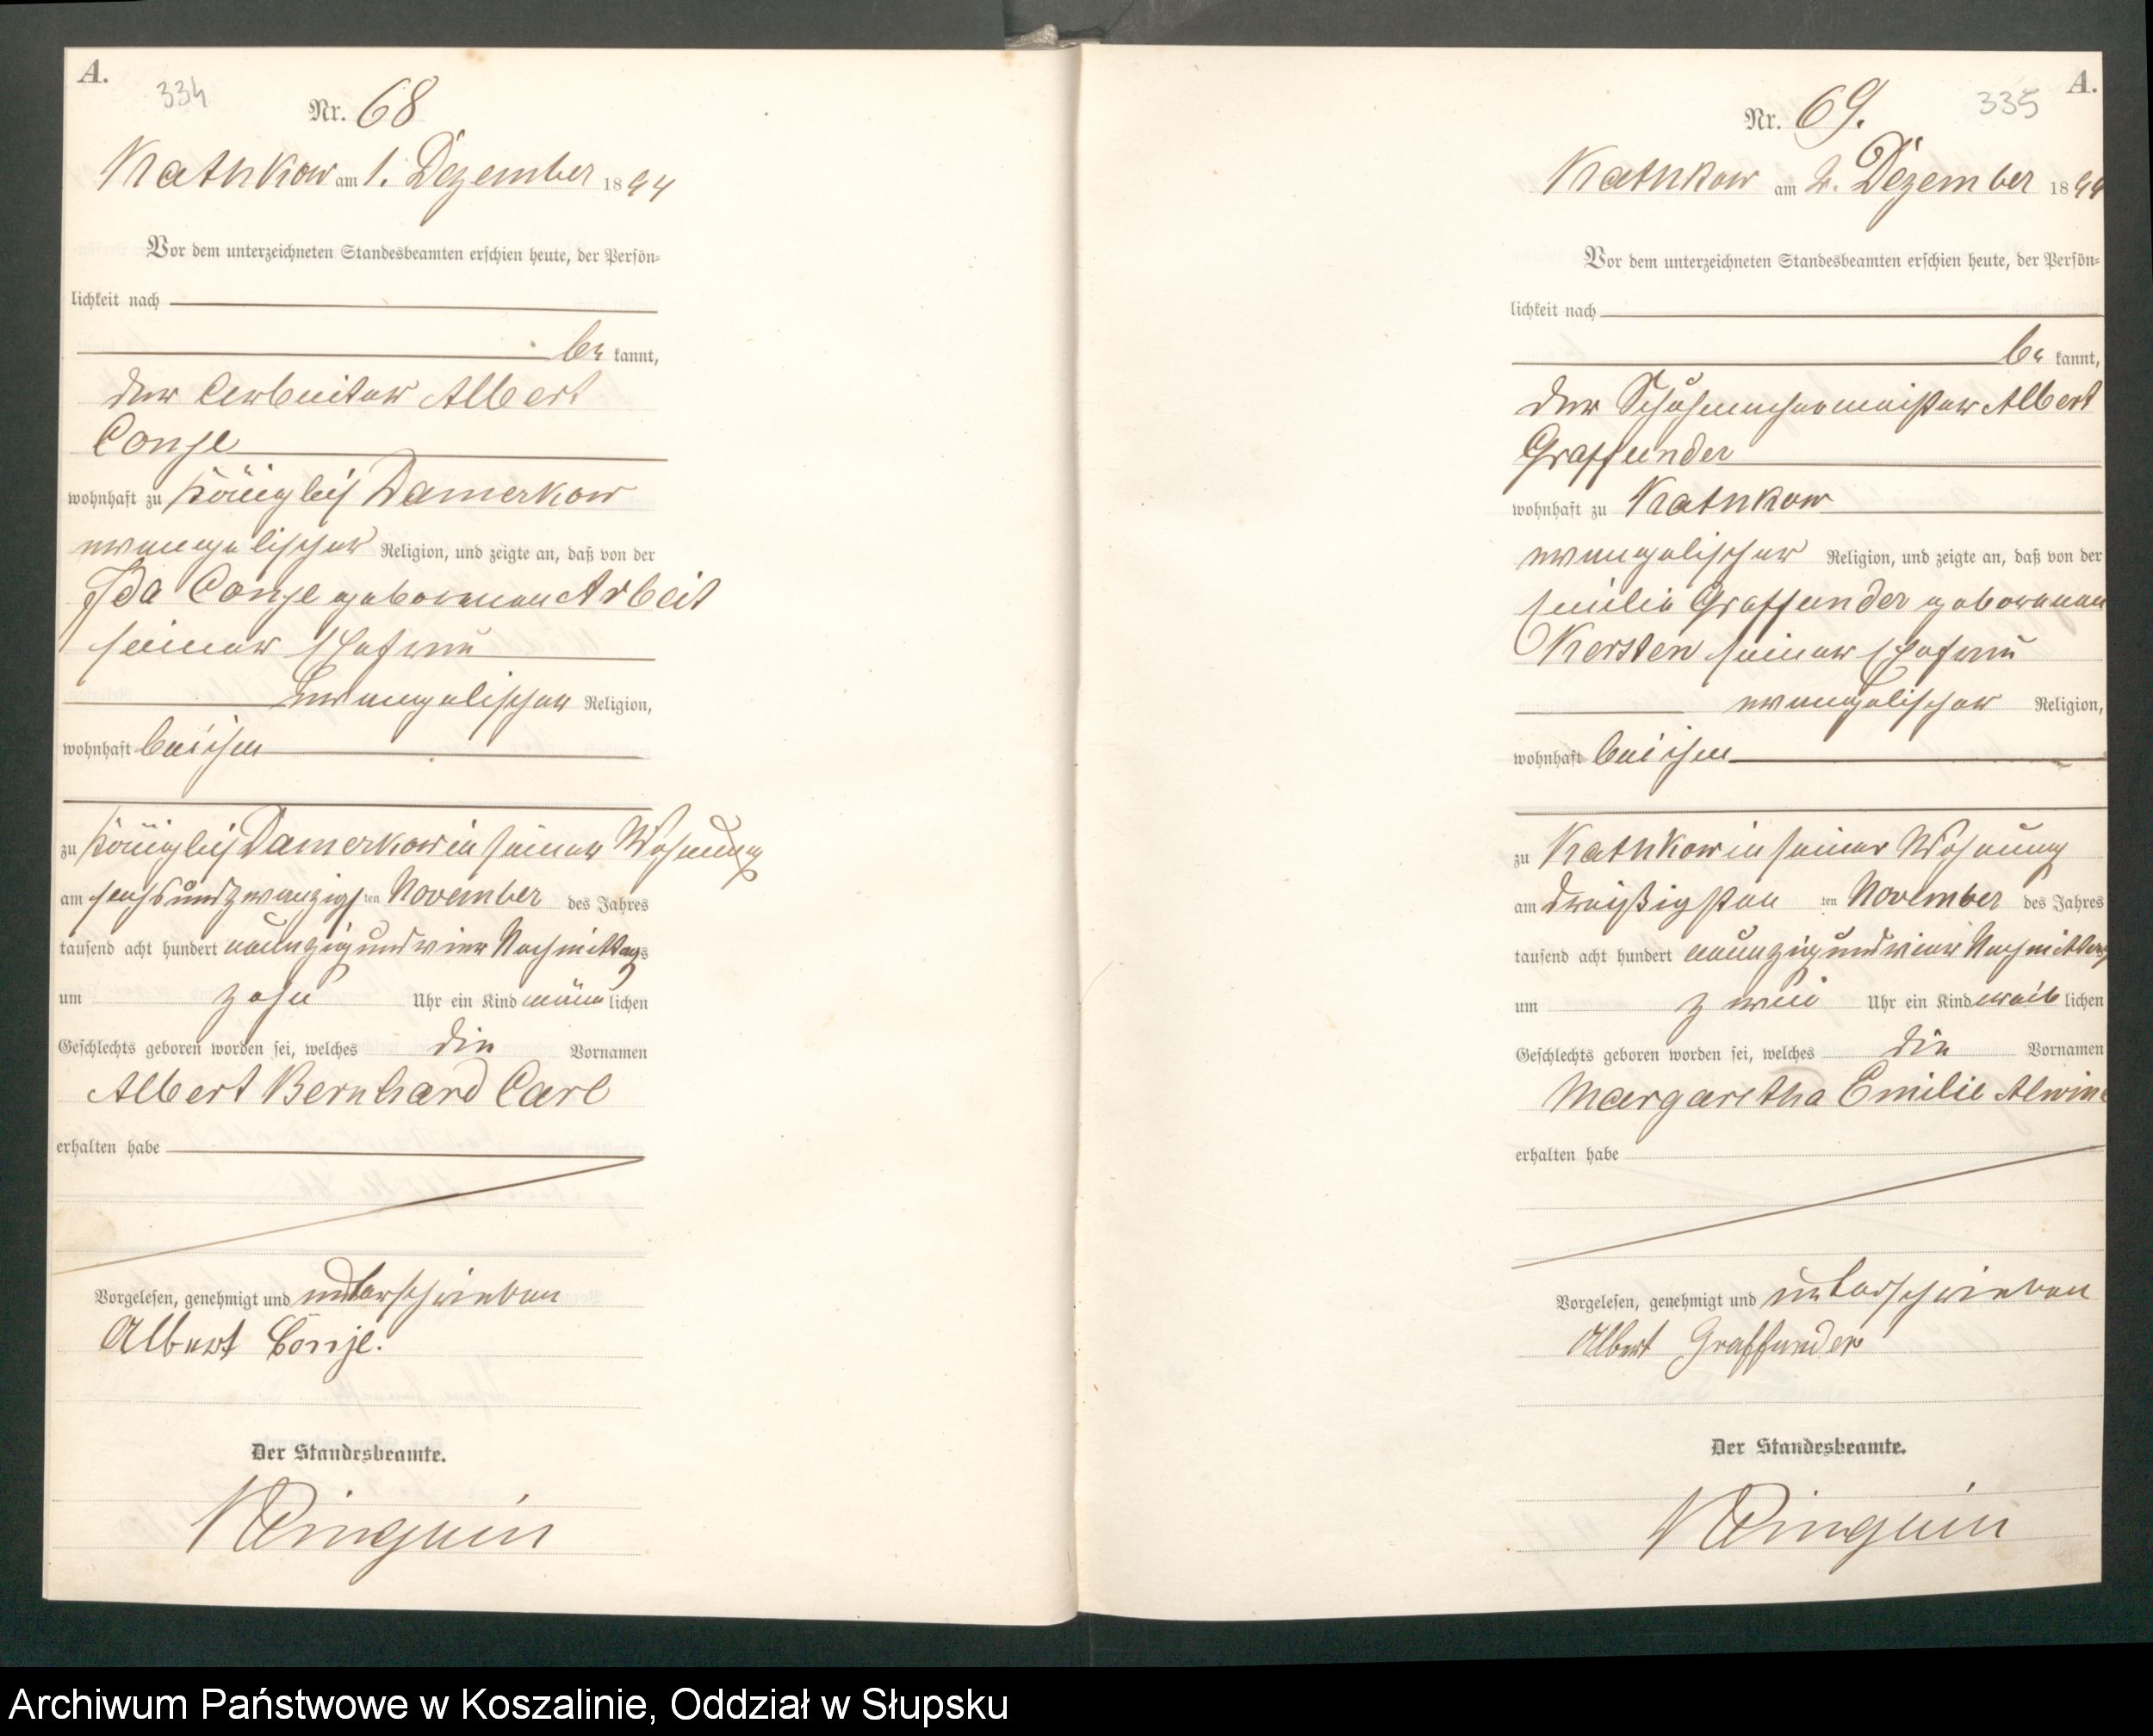 A.
334
Nr. 68
Kathkow am 1. Dezember 1894
Vor dem unterzeichneten Standesbeamten erschien heute, der Persön-
lichkeit nach
be kannt,
der Arbeiter Albert
Conje
wohnhaft zu Königlich Damerkow
evangelischer Religion, und zeigte an, daß von der
Ida Conje geborenen Arbeit
seiner Ehefrau
evangelischer Religion,
wohnhaft bei ihm
zu Königlich Damerkow in seiner Wohnung
am sechsundzwanzigsten November des Jahres
tausend acht hundert neunzig und vier Nachmittags
um zehn Uhr ein Kind männlichen
Geschlechts geboren worden sei, welches die Vornamen
Albert Bernhard Carl
erhalten habe
Vorgelesen, genehmigt und unterschrieben
Albert Conje.
Der Standesbeamte.
A.
335
Nr. 69.
Kathkow am 2. Dezember 1894
Vor dem unterzeichneten Standesbeamten erschien heute, der Persön-
lichkeit nach
be kannt,
der Schuhmachermeister Albert
Graffunder
wohnhaft zu Kathkow
evangelischer Religion, und zeigte an, daß von der
Emilie Graffunder geborenen
Kersten seiner Ehefrau
evangelischer Religion,
wohnhaft bei ihm
zu Kathkow in seiner Wohnung
am dreißigsten ten November des Jahres
tausend acht hundert neunzig und vier Nachmittags
um zwei Uhr ein Kind weiblichen
Geschlechts geboren worden sei, welches die Vornamen
Margaretha Emilie Alwine
erhalten habe
Vorgelesen, genehmigt und unterschrieben
Albert Graffunder
Der Standesbeamte.
Archiwum Państwowe w Koszalinie, Oddział w Słupsku